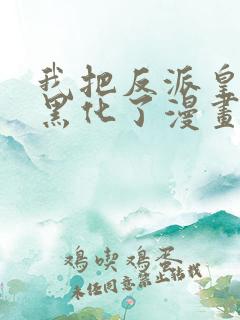 我把反派皇
黑化了漫畫
鸡喫鸡蛋
未经同意禁止转载